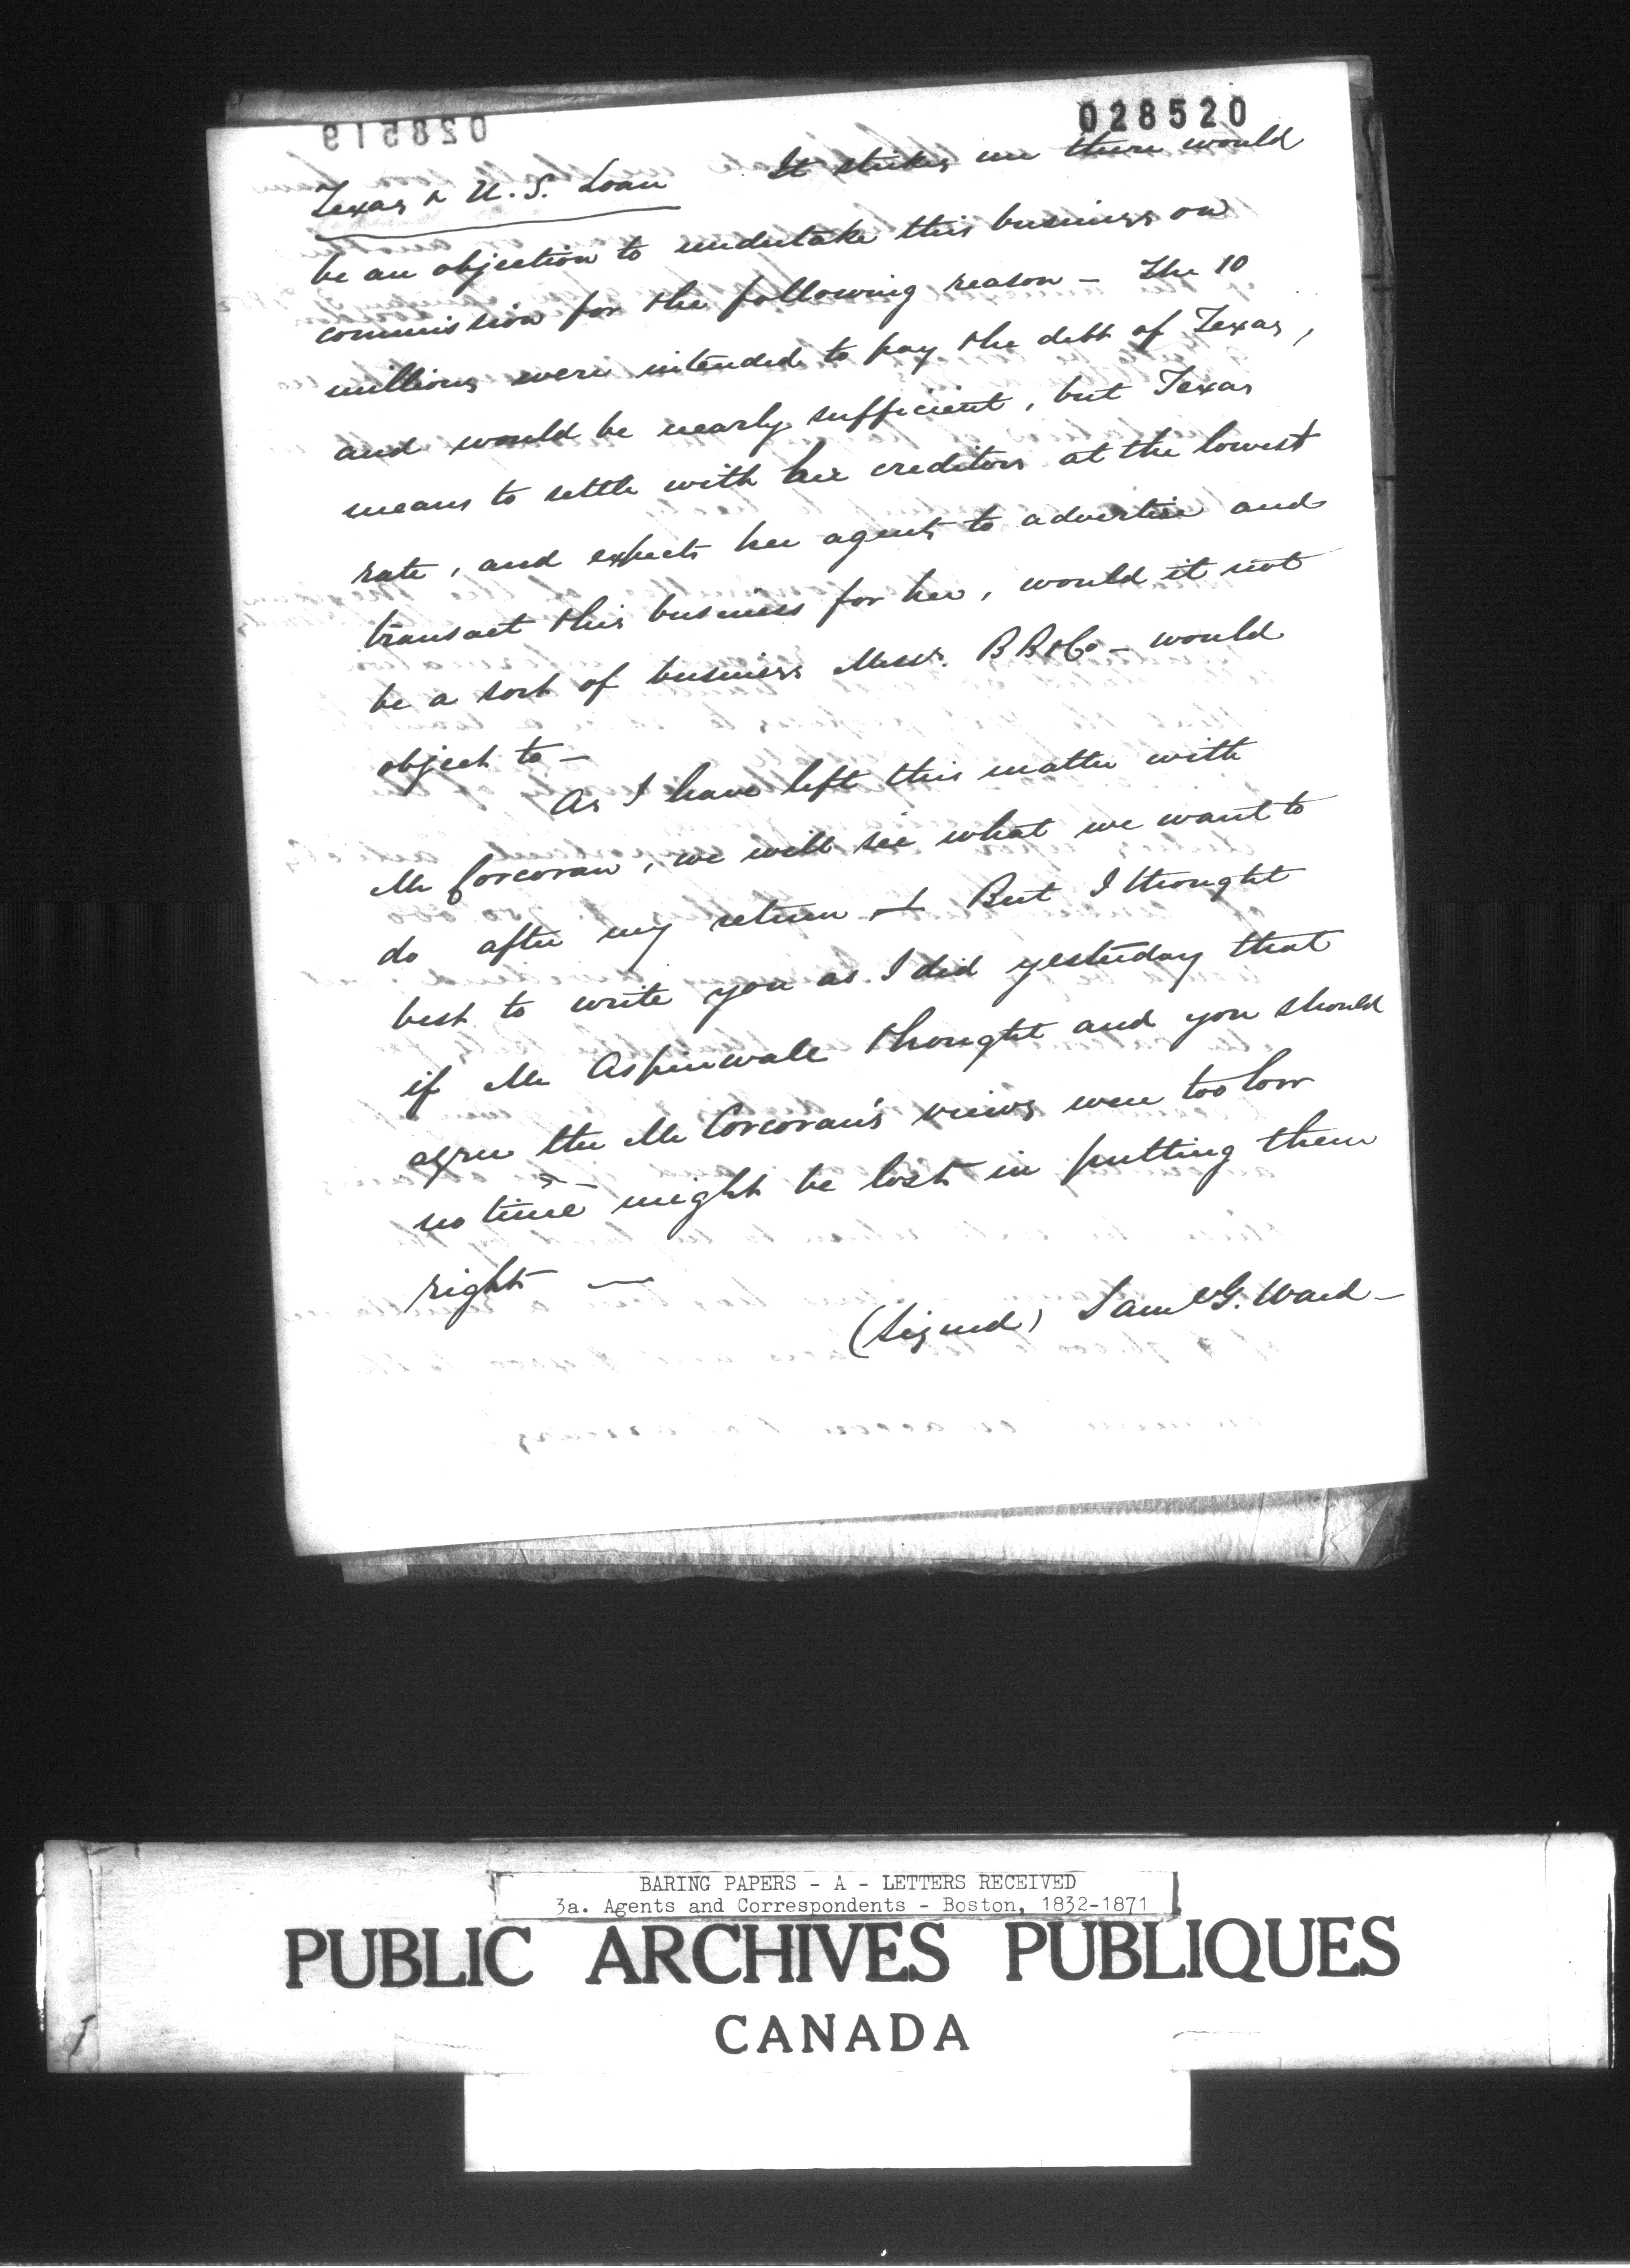 028520
Texas & U.S. Loan It strikes me there would
be an objection to undertake this business on
commission for the following reason – The 10
millions were intended to pay the debt of Texas,
and would be nearly sufficient, but Texas
means to settle with her creditors at the lowest
rate, and expects her agents to advertise and
transact this business for her, would it not
be a sort of business Messrs. BB&Co – would
object to –
As I have left this matter with
Mr Corcoran, we will see what we want to
do after my return – But I thought
best to write you as I did yesterday that
if Mr Aspinwall thought and you should
agree the Mr Corcoran's views were too low
no time might be lost in putting them
right —
(Signed) Saml G. Ward –
BARING PAPERS - A - LETTERS RECEIVED
3a. Agents and Correspondents - Boston, 1832-1871
PUBLIC ARCHIVES PUBLIQUES
CANADA